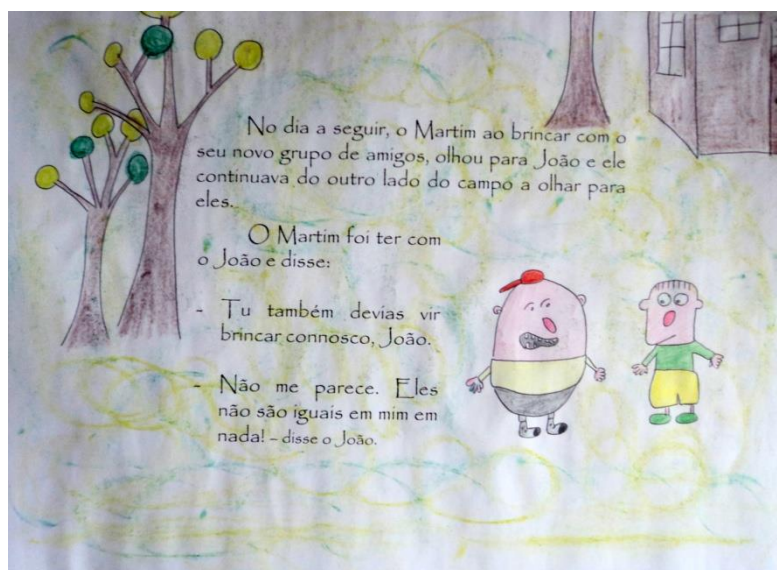 No dia a seguir, o Martim ao brincar com o
seu novo grupo de amigos, olhou para João e ele
continuava do outro lado do campo a olhar para
eles.
O Martim foi ter com
o João e disse:
- Tu também devias vir
brincar connosco, João.
- Não me parece. Eles
não são iguais em mim em
nada! – disse o João.